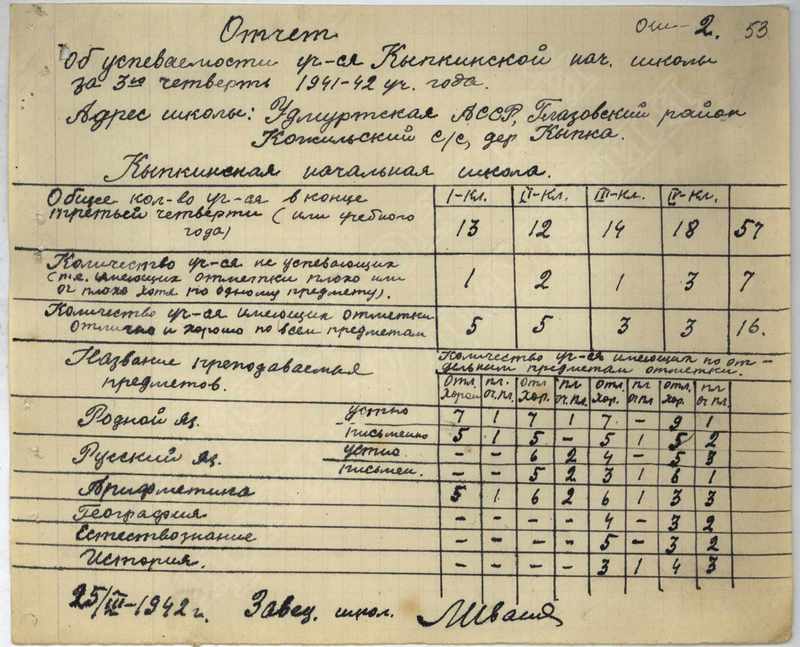 Отчет
2. 53
об успеваемости уч-ся Кыпкинской нач. школы
за 3ю четверть 1941-42 уч. года.
Адрес школы: Удмуртская АССР, Глазовский район
Кожильский с/с, дер Кыпка.
Кыпкинская начальная школа.
Общее кол-во уч-ся в конце третьей четверти (или учебного года) I-Кл. II-Кл. III-Кл. IV-Кл.
13 12 14 18 57
Количество уч-ся не успевающих
(т.е. имеющих отметки плохо или
оч плохо хотя по одному предмету). 1 2 1 3 7
Количество уч-ся имеющих отметки
отлично и хорошо по всем предметам 5 5 3 3 16.
Название преподаваемых
предметов.
Количество уч-ся имеющих по от-
дельным предметам отметки.
Отл. хорош пл. оч.пл. отл хор. пл оч.пл. отл хор. пл оч пл отл. хор. пл оч пл.
Родной яз. устно 7 1 7 1 7 - 9 1
письменно 5 1 5 - 5 1 5 2
Русский яз. устно - - 6 2 4 - 5 3
письмен. - - 5 2 3 1 6 1
Арифметика 5 1 6 2 6 1 3 3
География - - - - 4 - 3 2
Естествознание - - - - 5 - 3 2
История. - - - - 3 1 4 3
25/III-1942 г. Завед. школ.